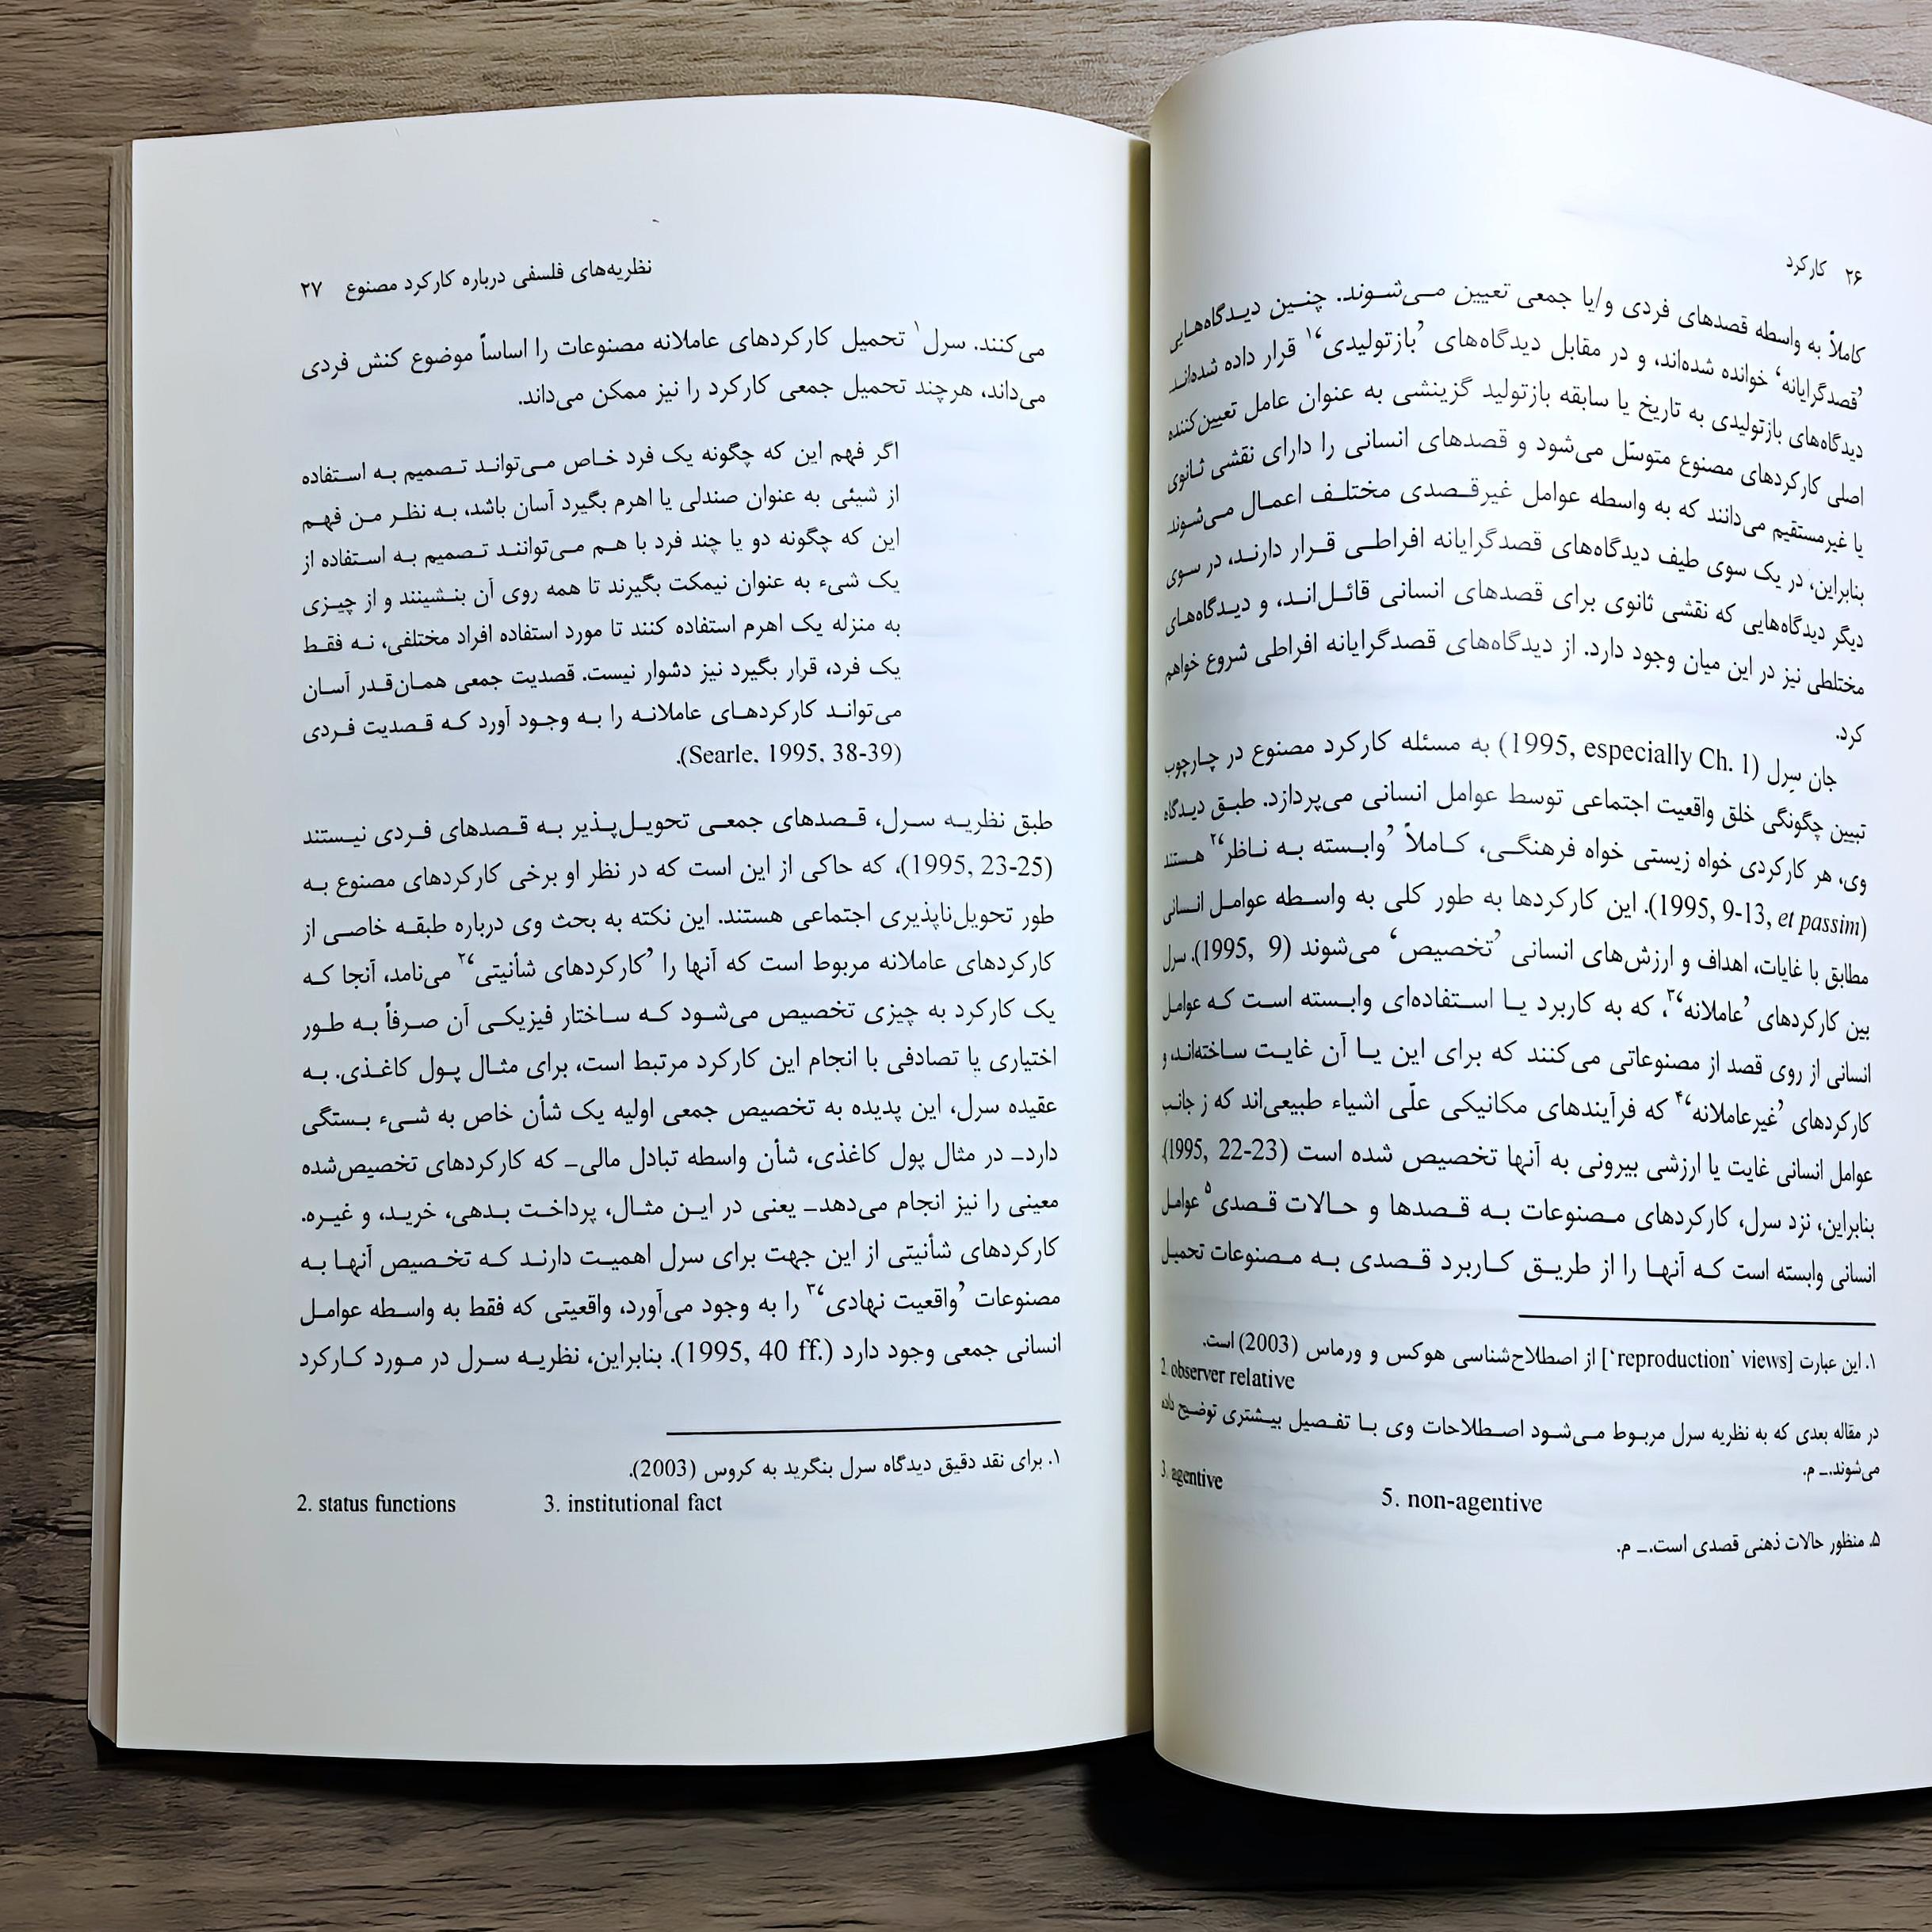 ۲۶ کارکرد
کاملاً به واسطه قصدهای فردی و/یا جمعی تعیین می‌شوند. چنین دیدگاه‌هایی
’قصدگرایانه‘ خوانده شده‌اند، و در مقابل دیدگاه‌های ’بازتولیدی‘۱ قرار داده شده‌اند
دیدگاه‌های بازتولیدی به تاریخ یا سابقه بازتولید گزینشی به عنوان عامل تعیین‌کننده
اصلی کارکردهای مصنوع متوسّل می‌شود و قصدهای انسانی را دارای نقشی ثانوی
یا غیرمستقیم می‌دانند که به واسطه عوامل غیرقصدی مختلف اعمال می‌شوند
بنابراین، در یک سوی طیف دیدگاه‌های قصدگرایانه افراطی قرار دارند، در سوی
دیگر دیدگاه‌هایی که نقشی ثانوی برای قصدهای انسانی قائل‌اند، و دیدگاه‌های
مختلطی نیز در این میان وجود دارد. از دیدگاه‌های قصدگرایانه افراطی شروع خواهم
کرد.
جان سِرل (1995, especially Ch. 1) به مسئله کارکرد مصنوع در چارچوب
تبیین چگونگی خلق واقعیت اجتماعی توسط عوامل انسانی می‌پردازد. طبق دیدگاه
وی، هر کارکردی خواه زیستی خواه فرهنگی، کاملاً ’وابسته به ناظر‘۲ هستند
(1995, 9-13, et passim). این کارکردها به طور کلی به واسطه عوامل انسانی
مطابق با غایات، اهداف و ارزش‌های انسانی ’تخصیص‘ می‌شوند (1995, 9). سرل
بین کارکردهای ’عاملانه‘۳، که به کاربرد یا استفاده‌ای وابسته است که عوامل
انسانی از روی قصد از مصنوعاتی می‌کنند که برای این یا آن غایت ساخته‌اند، و
کارکردهای ’غیرعاملانه‘۴ که فرآیندهای مکانیکی علّی اشیاء طبیعی‌اند که ز جانب
عوامل انسانی غایت یا ارزشی بیرونی به آنها تخصیص شده است (1995, 22-23)
بنابراین، نزد سرل، کارکردهای مصنوعات به قصدها و حالات قصدی۵ عوامل
انسانی وابسته است که آنها را از طریق کاربرد قصدی به مصنوعات تحمیل
۱. این عبارت [‘reproduction’ views] از اصطلاح‌شناسی هوکس و ورماس (2003) است.
2. observer relative
در مقاله بعدی که به نظریه سرل مربوط می‌شود اصطلاحات وی با تفصیل بیشتری توضیح داده
می‌شوند._ م.
3. agentive 5. non-agentive
۵. منظور حالات ذهنی قصدی است._ م.
نظریه‌های فلسفی درباره کارکرد مصنوع ۲۷
می‌کنند. سرل۱ تحمیل کارکردهای عاملانه مصنوعات را اساساً موضوع کنش فردی
می‌داند، هرچند تحمیل جمعی کارکرد را نیز ممکن می‌داند.
اگر فهم این که چگونه یک فرد خاص می‌تواند تصمیم به استفاده
از شیئی به عنوان صندلی یا اهرم بگیرد آسان باشد، به نظر من فهم
این که چگونه دو یا چند فرد با هم می‌توانند تصمیم به استفاده از
یک شیء به عنوان نیمکت بگیرند تا همه روی آن بنشینند و از چیزی
به منزله یک اهرم استفاده کنند تا مورد استفاده افراد مختلفی، نه فقط
یک فرد، قرار بگیرد نیز دشوار نیست. قصدیت جمعی همان‌قدر آسان
می‌تواند کارکردهای عاملانه را به وجود آورد که قصدیت فردی
(Searle, 1995, 38-39).
طبق نظریه سرل، قصدهای جمعی تحویل‌پذیر به قصدهای فردی نیستند
(1995, 23-25)، که حاکی از این است که در نظر او برخی کارکردهای مصنوع به
طور تحویل‌ناپذیری اجتماعی هستند. این نکته به بحث وی درباره طبقه خاصی از
کارکردهای عاملانه مربوط است که آنها را ’کارکردهای شأنیتی‘۲ می‌نامد، آنجا که
یک کارکرد به چیزی تخصیص می‌شود که ساختار فیزیکی آن صرفاً به طور
اختیاری یا تصادفی با انجام این کارکرد مرتبط است، برای مثال پول کاغذی. به
عقیده سرل، این پدیده به تخصیص جمعی اولیه یک شأن خاص به شیء بستگی
دارد_ در مثال پول کاغذی، شأن واسطه تبادل مالی_ که کارکردهای تخصیص‌شده
معینی را نیز انجام می‌دهد_ یعنی در این مثال، پرداخت بدهی، خرید، و غیره.
کارکردهای شأنیتی از این جهت برای سرل اهمیت دارند که تخصیص آنها به
مصنوعات ’واقعیت نهادی‘۳ را به وجود می‌آورد، واقعیتی که فقط به واسطه عوامل
انسانی جمعی وجود دارد (1995, 40 ff.). بنابراین، نظریه سرل در مورد کارکرد
۱. برای نقد دقیق دیدگاه سرل بنگرید به کروس (2003).
2. status functions 3. institutional fact